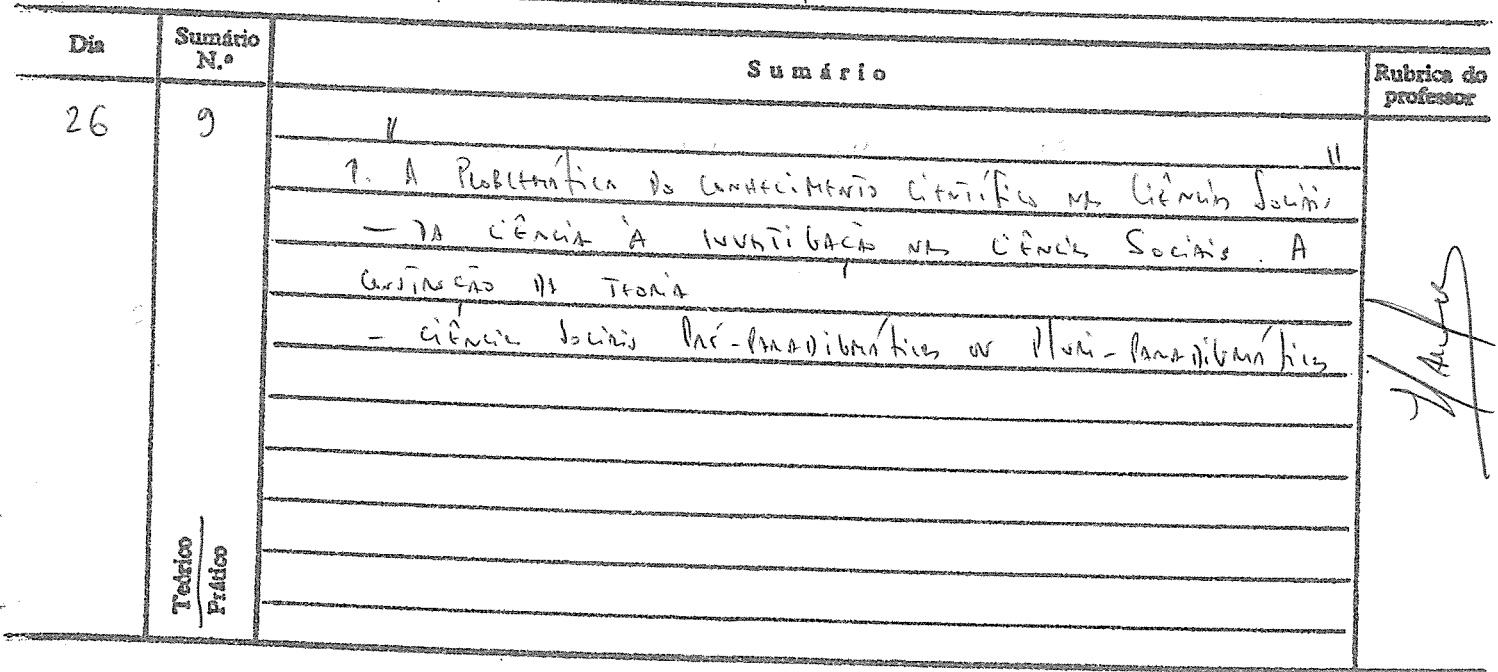 Dia Sumário N.º Sumário Rubrica do professor
26 9 " "
1. A Problemática do Conhecimento Científico nas Ciências Sociais
— Da Ciência à Investigação nas Ciências Sociais. A
Construção da Teoria
- Ciências Sociais Pré-Paradigmáticas ou Pluri-Paradigmáticas
Teórico
Prático